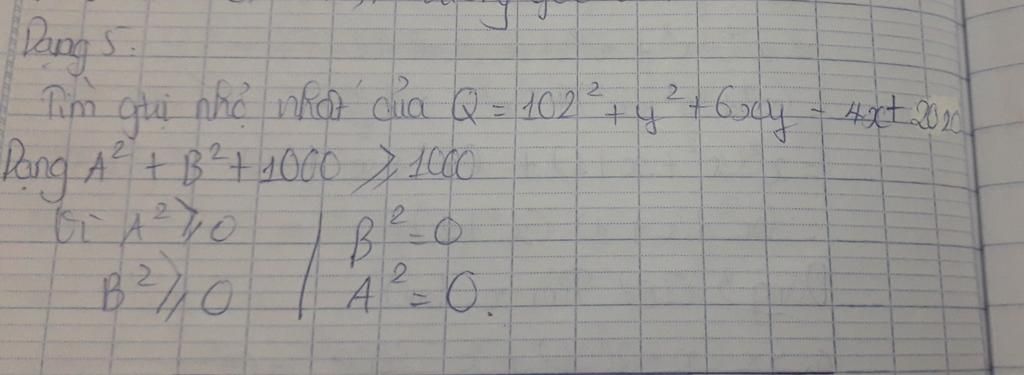 Dạng 5:
Tìm giá trị nhỏ nhất của Q = 10x² + y² + 6xy - 4x + 2020
Dạng A² + B² + 1000 ⩾ 1000
Vì A² ⩾ 0 | B² = 0
B² ⩾ 0 | A² = 0.